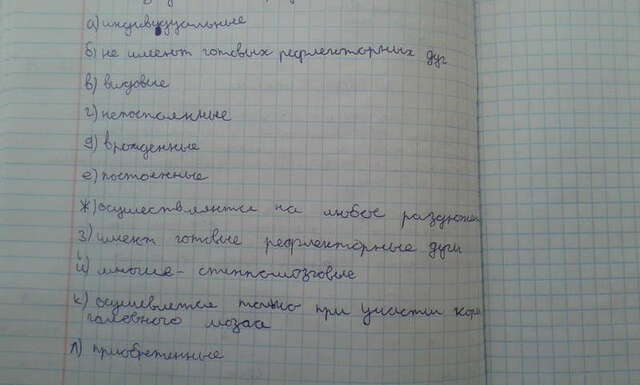 а) индивидуальные
б) не имеют готовых рефлекторных дуг
в) видовые
г) непостоянные
д) врожденные
е) постоянные
ж) осуществляются на любое раздражен
з) имеют готовые рефлекторные дуги
и) многие - спинномозговые
к) осуществляется только при участии коры
головного мозга
л) приобретенные